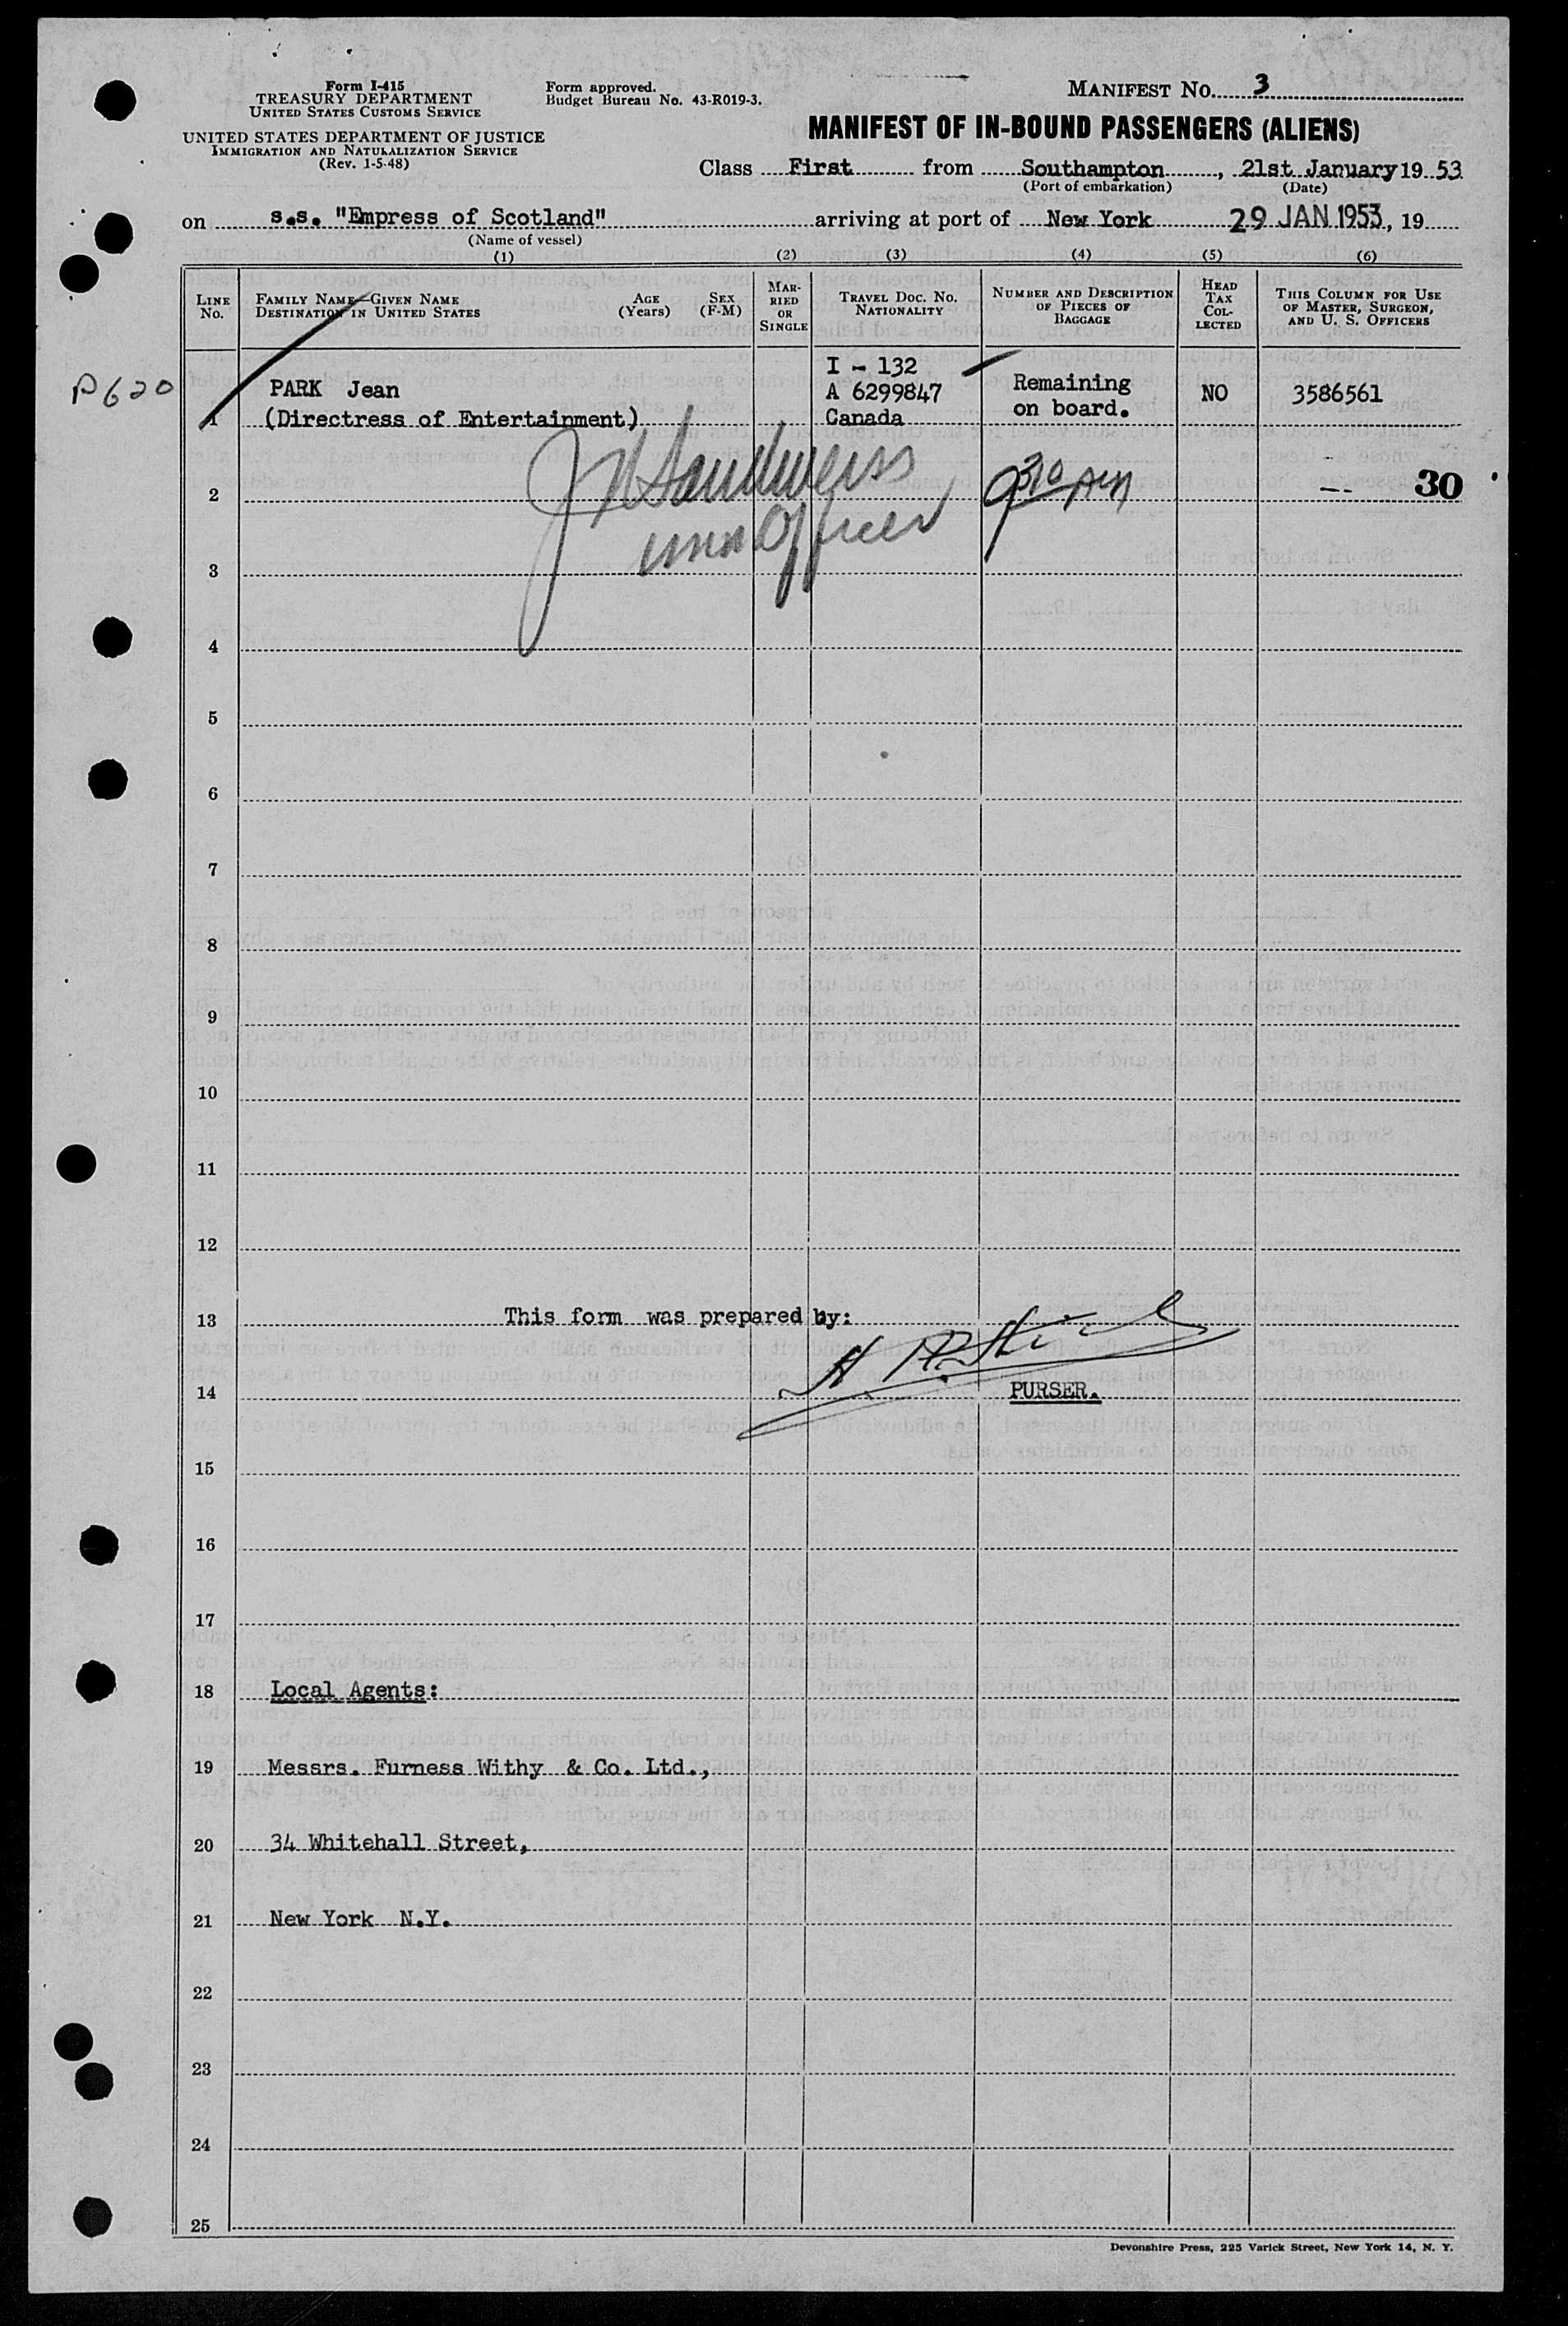 Form I-415
TREASURY DEPARTMENT
UNITED STATES CUSTOMS SERVICE
UNITED STATES DEPARTMENT OF JUSTICE
IMMIGRATION AND NATURALIZATION SERVICE
(Rev. 1-5-48)
Form approved.
Budget Bureau No. 43-R019-3.
MANIFEST NO. 3
MANIFEST OF IN-BOUND PASSENGERS (ALIENS)
Class First from Southampton, 21st January 19 53
(Port of embarkation) (Date)
on s.s. "Empress of Scotland" arriving at port of New York 29 JAN 1953, 19
(Name of vessel)
(1) (2) (3) (4) (5) (6)
LINE No.
FAMILY NAME—GIVEN NAME
DESTINATION IN UNITED STATES
AGE (Years)
SEX (F-M)
MAR-RIED OR SINGLE
TRAVEL DOC. NO. NATIONALITY
NUMBER AND DESCRIPTION OF PIECES OF BAGGAGE
HEAD TAX COL-LECTED
THIS COLUMN FOR USE OF MASTER, SURGEON, AND U. S. OFFICERS
P620
1 PARK Jean
(Directress of Entertainment)
I - 132
A 6299847
Canada
Remaining
on board.
NO
3586561
2 30
3
4
5
6
7
8
9
10
11
12
13 This form was prepared by:
14 PURSER.
15
16
17
18 Local Agents:
19 Messrs. Furness Withy & Co. Ltd.,
20 34 Whitehall Street,
21 New York N.Y.
22
23
24
25
Devonshire Press, 225 Varick Street, New York 14, N. Y.